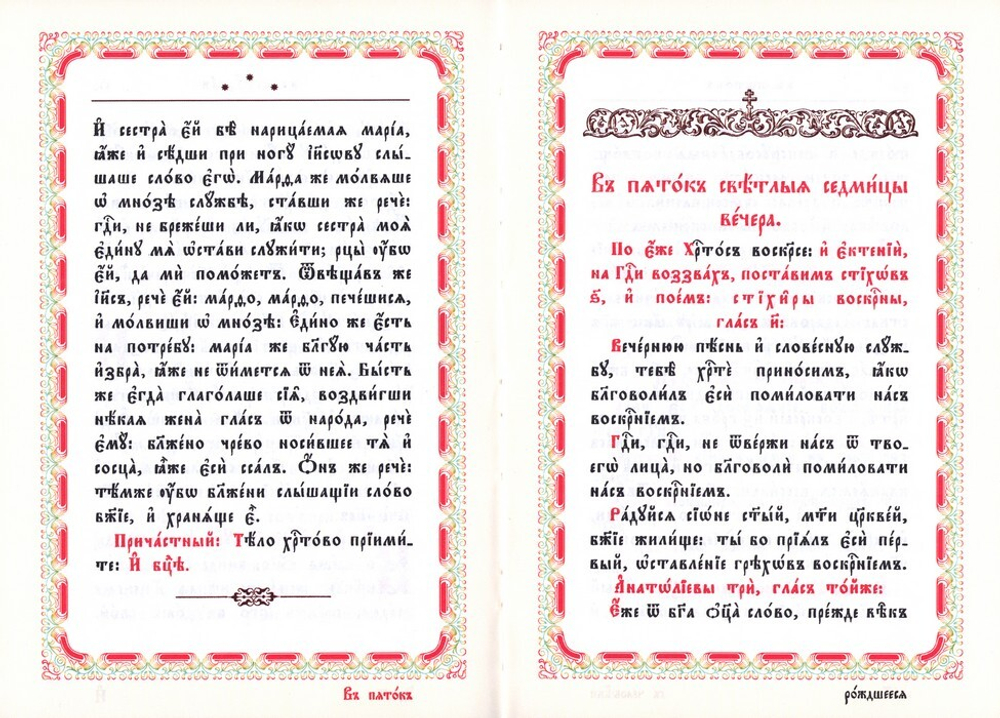 И҆ сестра̀ є҆́й бѣ̀ нарица́емая марі́а,
ꙗ҆́же и҆ сѣ́дши при ногꙋ̀ і҆и҃сѡвꙋ слы́-
шаше сло́во є҆гѡ̀. Ма́рѳа же мо́лвѧше
ѡ҆ мно́зѣ слꙋ́жбѣ, ста́вши же речѐ:
гдⷭ҇и, не бреже́ши ли, ꙗ҆́кѡ сестра̀ моѧ̀
є҆ди́нꙋ мѧ̀ ѡ҆ста́ви слꙋжи́ти; рцы̀ ᲂу҆̀бѡ
є҆́й, да мѝ помо́жетъ. Ѿвѣща́въ же
і҆и҃съ, речѐ є҆́й: ма́рѳо, ма́рѳо, пече́шисѧ,
и҆ мо́лвиши ѡ҆ мно́зѣ: Є҆ди́но же є҆́сть
на потре́бꙋ: марі́а же бл҃гꙋ́ю ча́сть
и҆збра̀, ꙗ҆́же не ѿи́метсѧ ѿ неѧ̀. Бы́сть
же є҆гда̀ глаго́лаше сїѧ̑, воздви́гши
нѣ́каѧ жена̀ гла́съ ѿ наро́да, речѐ
є҆мꙋ̀: бл҃же́но чре́во носи́вшее тѧ̀ и҆
сосца̑, ꙗ҆̀же є҆сѝ сса́лъ. Ѻ҆́нъ же речѐ:
тѣ́мже ᲂу҆̀бѡ бл҃же́ни слы́шащїи сло́во
бж҃їе, и҆ хранѧ́ще є҆̀.
Прича́стный: Тѣ́ло хрⷭ҇то́во прїими́-
те: И҆̀ бцⷣѣ.
Въ пѧто́къ
Въ пѧто́къ свѣ́тлыѧ седми́цы
ве́чера.
По є҆́же Хрⷭ҇то́съ воскре́се: и҆ є҆ктенїѝ,
на Гдⷭ҇и воззва́хъ, поста́вимъ стїхѡ́въ
ѕ҃, и҆ пое́мъ: стїхи̑ры воскрⷭ҇ны,
гла́съ и҃:
Вече́рнюю пѣ́снь и҆ слове́снꙋю слꙋ́ж-
бꙋ, тебѣ̀ хрⷭ҇тѐ прино́симъ, ꙗ҆́кѡ
бл҃говоли́лъ є҆сѝ поми́ловати на́съ
воскрⷭ҇нїемъ.
Гдⷭ҇и, гдⷭ҇и, не ѿве́ржи на́съ ѿ тво-
егѡ̀ лица̀, но бл҃говолѝ поми́ловати
на́съ воскрⷭ҇нїемъ.
Ра́дꙋйсѧ сїѡ́не ст҃ы́й, мт҃и цр҃кве́й,
бж҃їе жили́ще: ты́ бо прїѧ́лъ є҆сѝ пе́р-
вый, ѡ҆ставле́нїе грѣхѡ́въ воскрⷭ҇нїемъ.
А҆нато́лїевы трѝ, гла́съ то́йже:
Є҆́же ѿ бг҃а ѻ҆ц҃а̀ сло́во, пре́жде вѣ̑къ
ро́ждшеесѧ